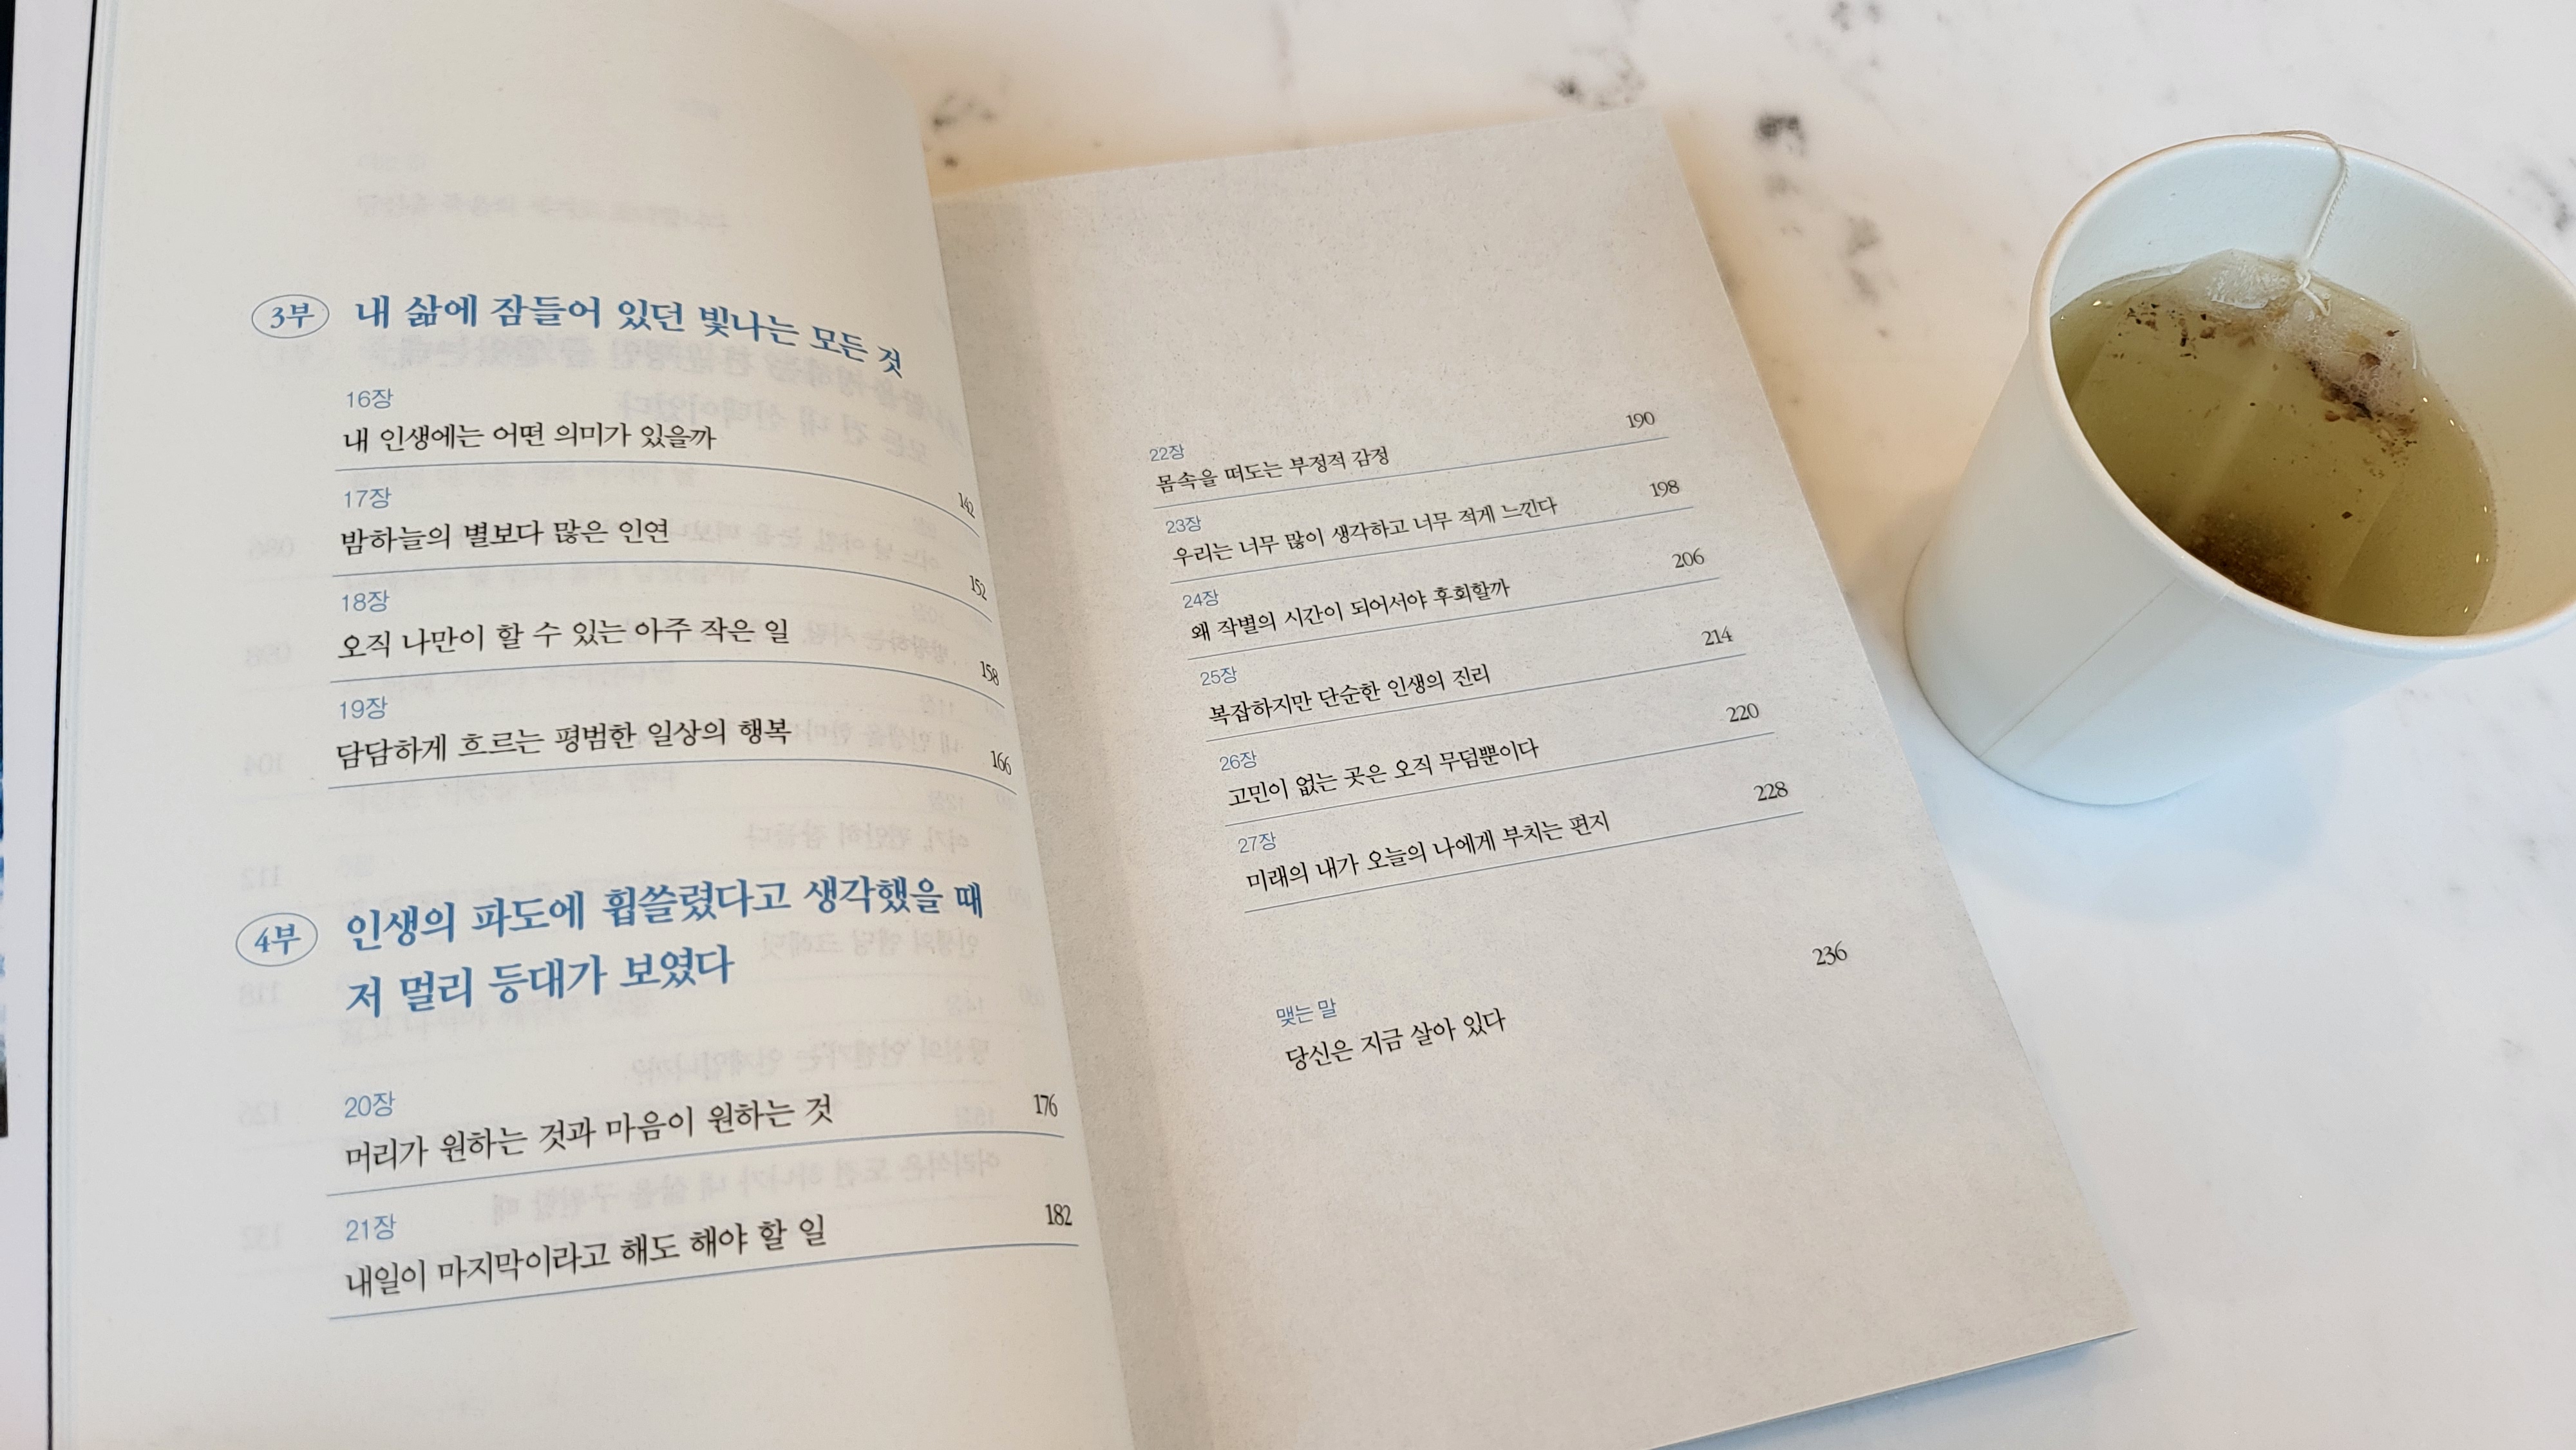 3부 내 삶에 잠들어 있던 빛나는 모든 것
16장
내 인생에는 어떤 의미가 있을까 142
17장
밤하늘의 별보다 많은 인연 152
18장
오직 나만이 할 수 있는 아주 작은 일 158
19장
담담하게 흐르는 평범한 일상의 행복 166
4부 인생의 파도에 휩쓸렸다고 생각했을 때
저 멀리 등대가 보였다
20장
머리가 원하는 것과 마음이 원하는 것 176
21장
내일이 마지막이라고 해도 해야 할 일 182
22장
몸속을 떠도는 부정적 감정 190
23장
우리는 너무 많이 생각하고 너무 적게 느낀다 198
24장
왜 작별의 시간이 되어서야 후회할까 206
25장
복잡하지만 단순한 인생의 진리 214
26장
고민이 없는 곳은 오직 무덤뿐이다 220
27장
미래의 내가 오늘의 나에게 부치는 편지 228
맺는 말
당신은 지금 살아 있다 236